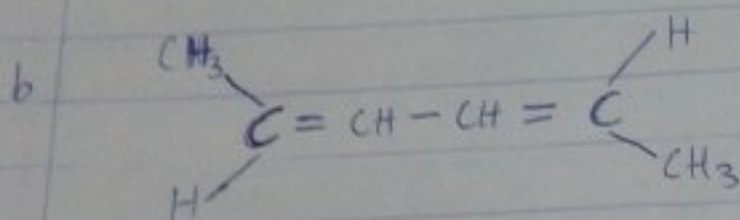 b
CH3
H
C = CH - CH = C
H
CH3